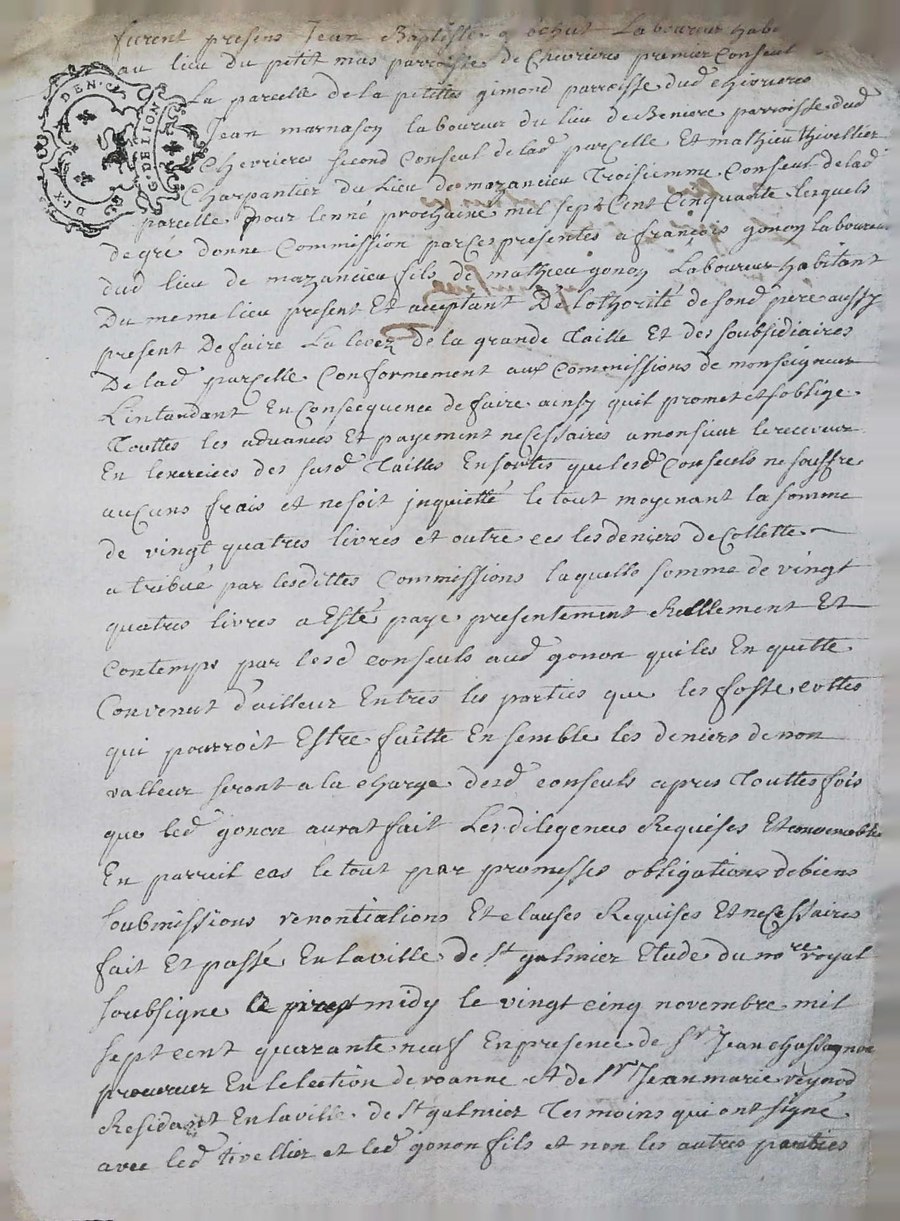 furent presens Jean Baptiste Laboureur habi
au lieu du petit mas parroisse de Chevrieres premier Conseul
La parcelle de la petittes gimond parroisse dud chevrieres
Jean marnason laboureur du lieu de Beniere parroisse dud
Chevriere second Conseul delad parcelle Et mathieu thivellier
Charpantier du lieu de mazancieu Troisiemme Conseul delad
parcelle pour lenné prochaine mil sept Cent Cinquante lesquels
de gré donne Commission par Ces presentes a françois gonon laboureur
dud lieu de mazancieu fils de mathieu gonon Laboureur habitant
Du meme lieu present Et aceptant De lothorité de sond pere aussy
present De faire La levez de la grande Taille Et des soubsidiaires
De lad parcelle Conformement aux Commissions de monseigneur
L'intandant En Consecquence de faire ainsy quil promet et soblige
Touttes les advances Et payement necessaires a monsieur le receveur
En lexercices des susd Tailles En sortes que lesd Conseuls ne souffre
aucuns frais et ne soit jnquietté le tout moyenant la somme
de vingt quatres livres et outre ces les deniers de Collette
atribué par lesdittes Commissions laquelle somme de vingt
quatres livres a Esté payé presentement Réellement Et
Contemps par lesd conseuls aud gonon qui les En quitte
Convenut d'ailleur Entres les parties que les fosse cottes
qui pourroit Estre faitte En semble les deniers de non
valleur seront a la charge desd conseuls apres Touttes fois
que led gonon aurat fait Les diligences Requises Et convenable
En parreil cas le tout par promesses obligations de biens
soubmissions renontiations Et clauses Requises Et necessaires
fait Et passé En la ville de St galmier Etude du nore royal
soubsigne midy le vingt cinq novembre mil
sept cent quarante neuf En presence de Sr Jean chassagnon
procureur En lelection de roanne et de Sr Jean marie reynod
Residant En la ville de St galmier Tesmoins qui ont signé
avec led tivellier et led gonon fils et non les autres parties
DEN.
G. DE LION